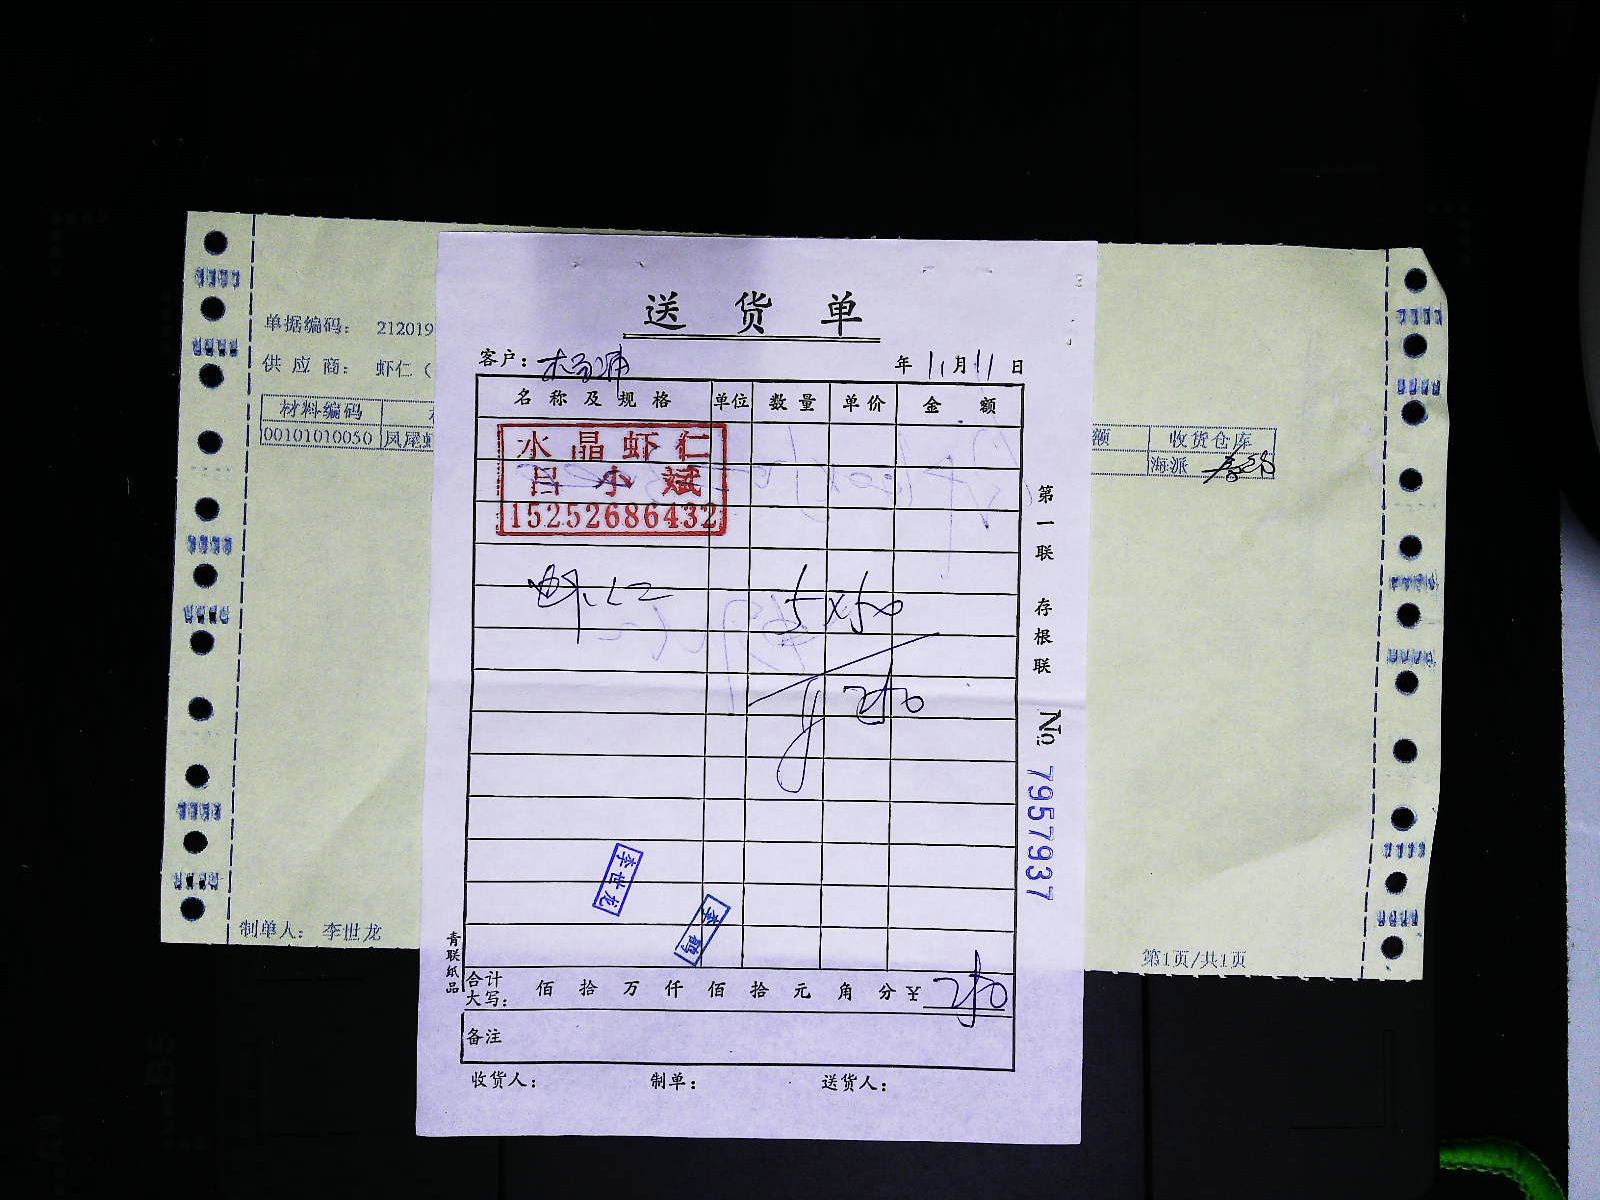 送货单
客户：
年 11月11日
名称及规格 单位 数量 单价 金额
水晶虾仁
吕小斌
15252686432
虾仁 5×50
250
李世龙
李鹤
合计大写： 佰 拾 万 仟 佰 拾 元 角 分 ¥ 250
备注
收货人： 制单： 送货人：
第一联 存根联 No 7957937
青联纸品
单据编码： 212019
供应商： 虾仁（
材料编码
00101010050 凤尾虾
额 收货仓库
海派
制单人： 李世龙
第1页/共1页